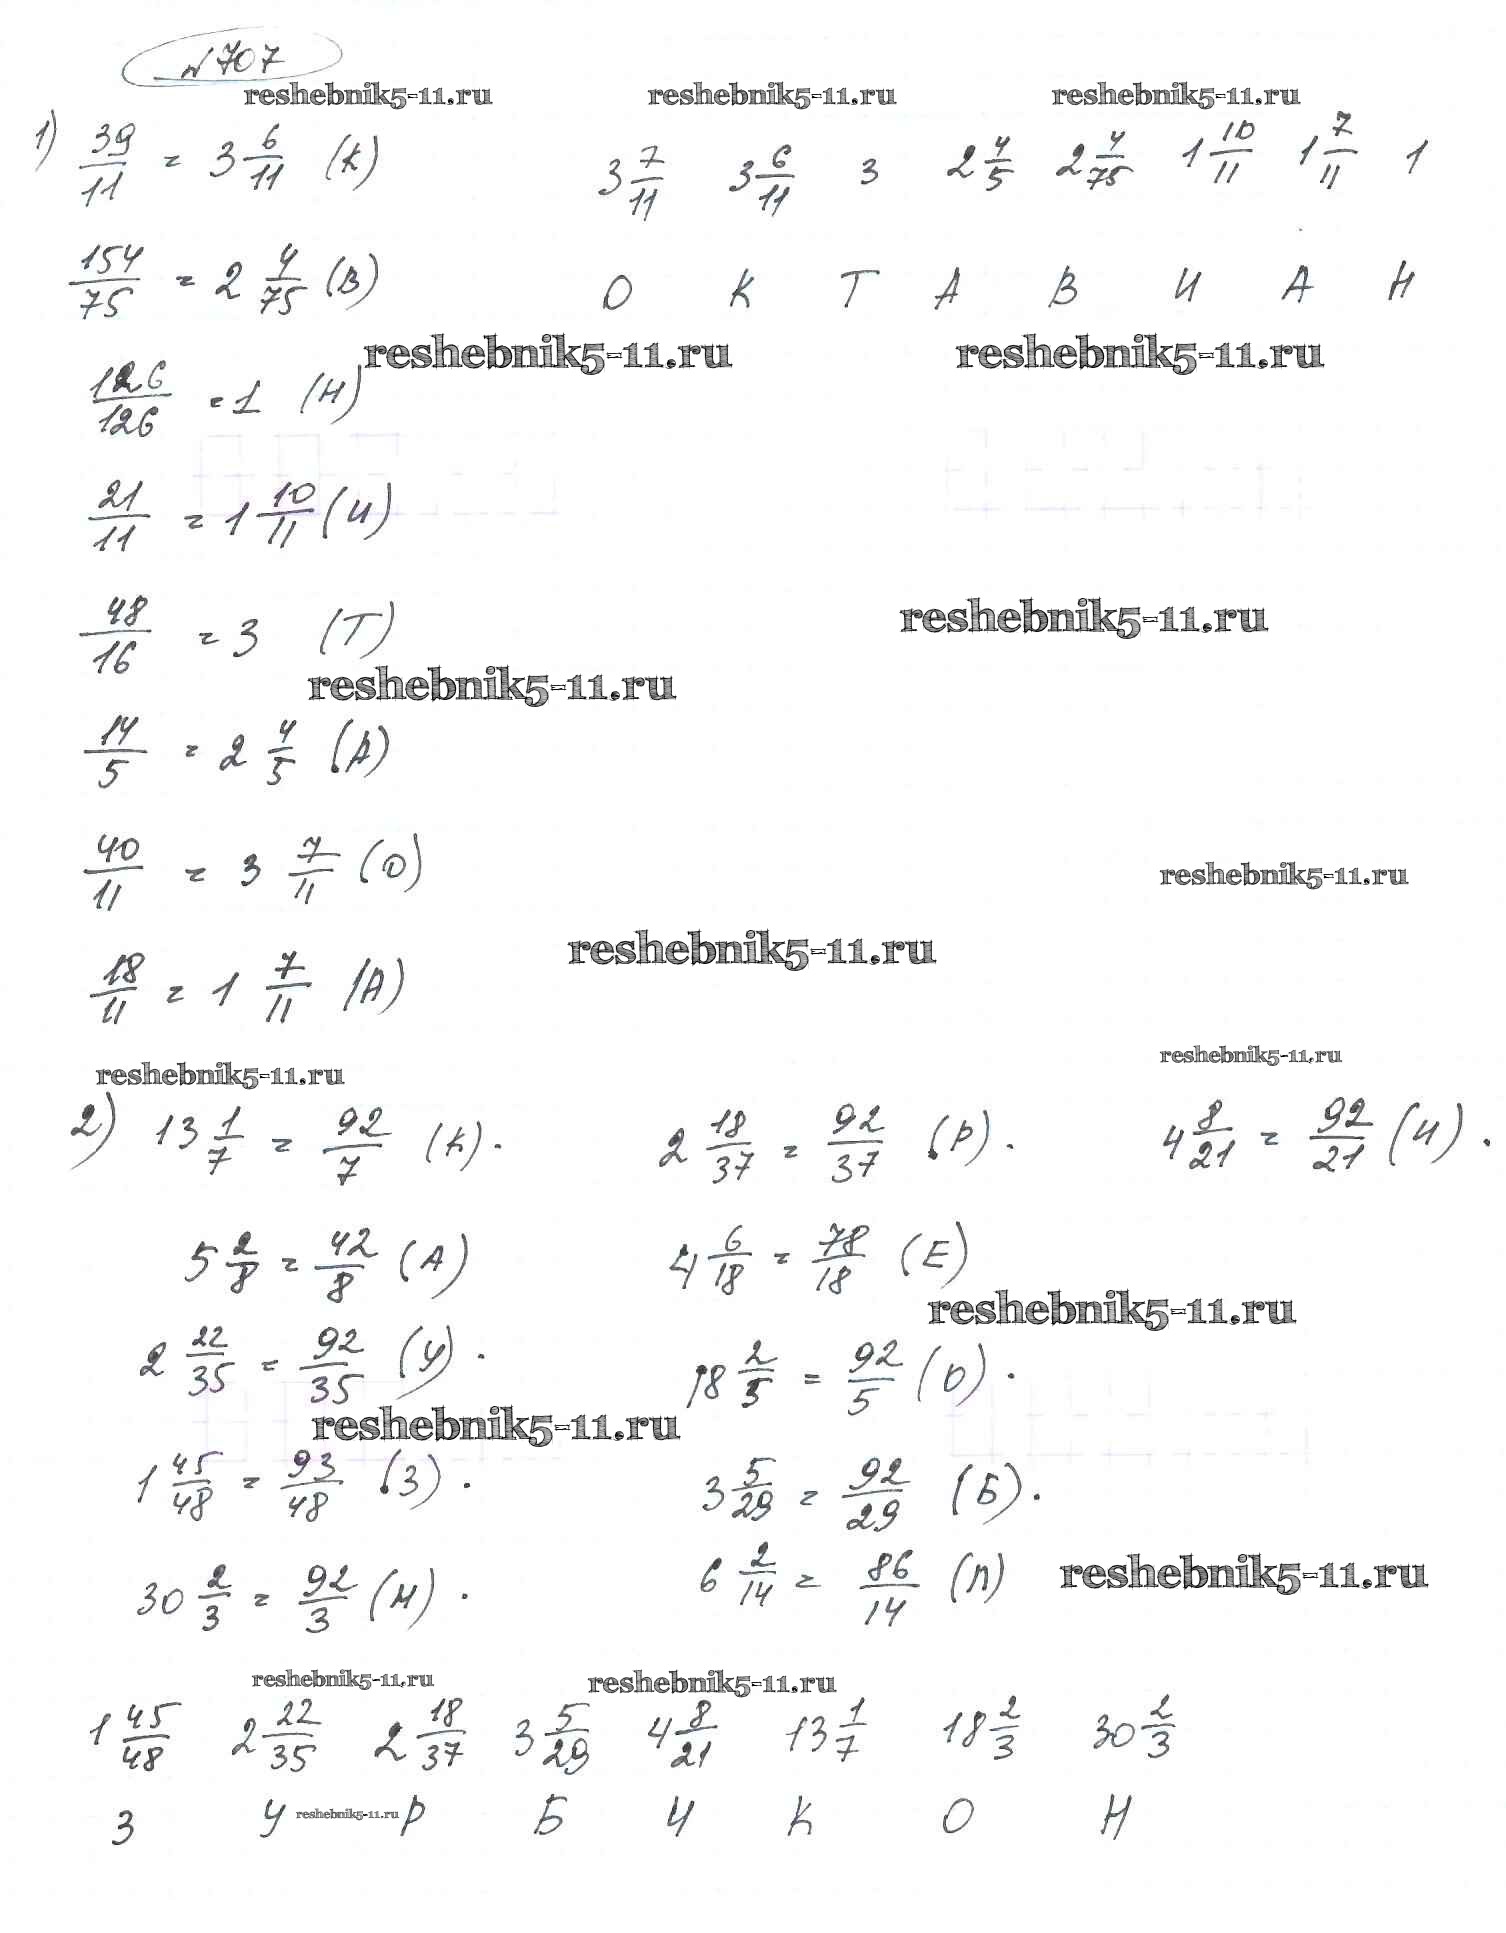 №707
reshebnik5-11.ru reshebnik5-11.ru reshebnik5-11.ru
1) 39/11 = 3 6/11 (К) 3 7/11 3 6/11 3 2 4/5 2 4/75 1 10/11 1 7/11 1
154/75 = 2 4/75 (В) О К Т А В И А Н
reshebnik5-11.ru reshebnik5-11.ru
126/126 = 1 (Н)
21/11 = 1 10/11 (И)
48/16 = 3 (Т)
reshebnik5-11.ru
reshebnik5-11.ru
14/5 = 2 4/5 (А)
40/11 = 3 7/11 (О)
reshebnik5-11.ru
reshebnik5-11.ru
18/11 = 1 7/11 (А)
reshebnik5-11.ru reshebnik5-11.ru
2) 13 1/7 = 92/7 (К). 2 18/37 = 92/37 (Р). 4 8/21 = 92/21 (И).
5 2/8 = 42/8 (А) 4 6/18 = 78/18 (Е)
reshebnik5-11.ru
2 22/35 = 92/35 (У). 18 2/5 = 92/5 (О).
reshebnik5-11.ru
1 45/48 = 93/48 (З). 3 5/29 = 92/29 (Б).
30 2/3 = 92/3 (Н). 6 2/14 = 86/14 (П)
reshebnik5-11.ru
reshebnik5-11.ru reshebnik5-11.ru
1 45/48 2 22/35 2 18/37 3 5/29 4 8/21 13 1/7 18 2/3 30 2/3
З У reshebnik5-11.ru Р Б И К О Н